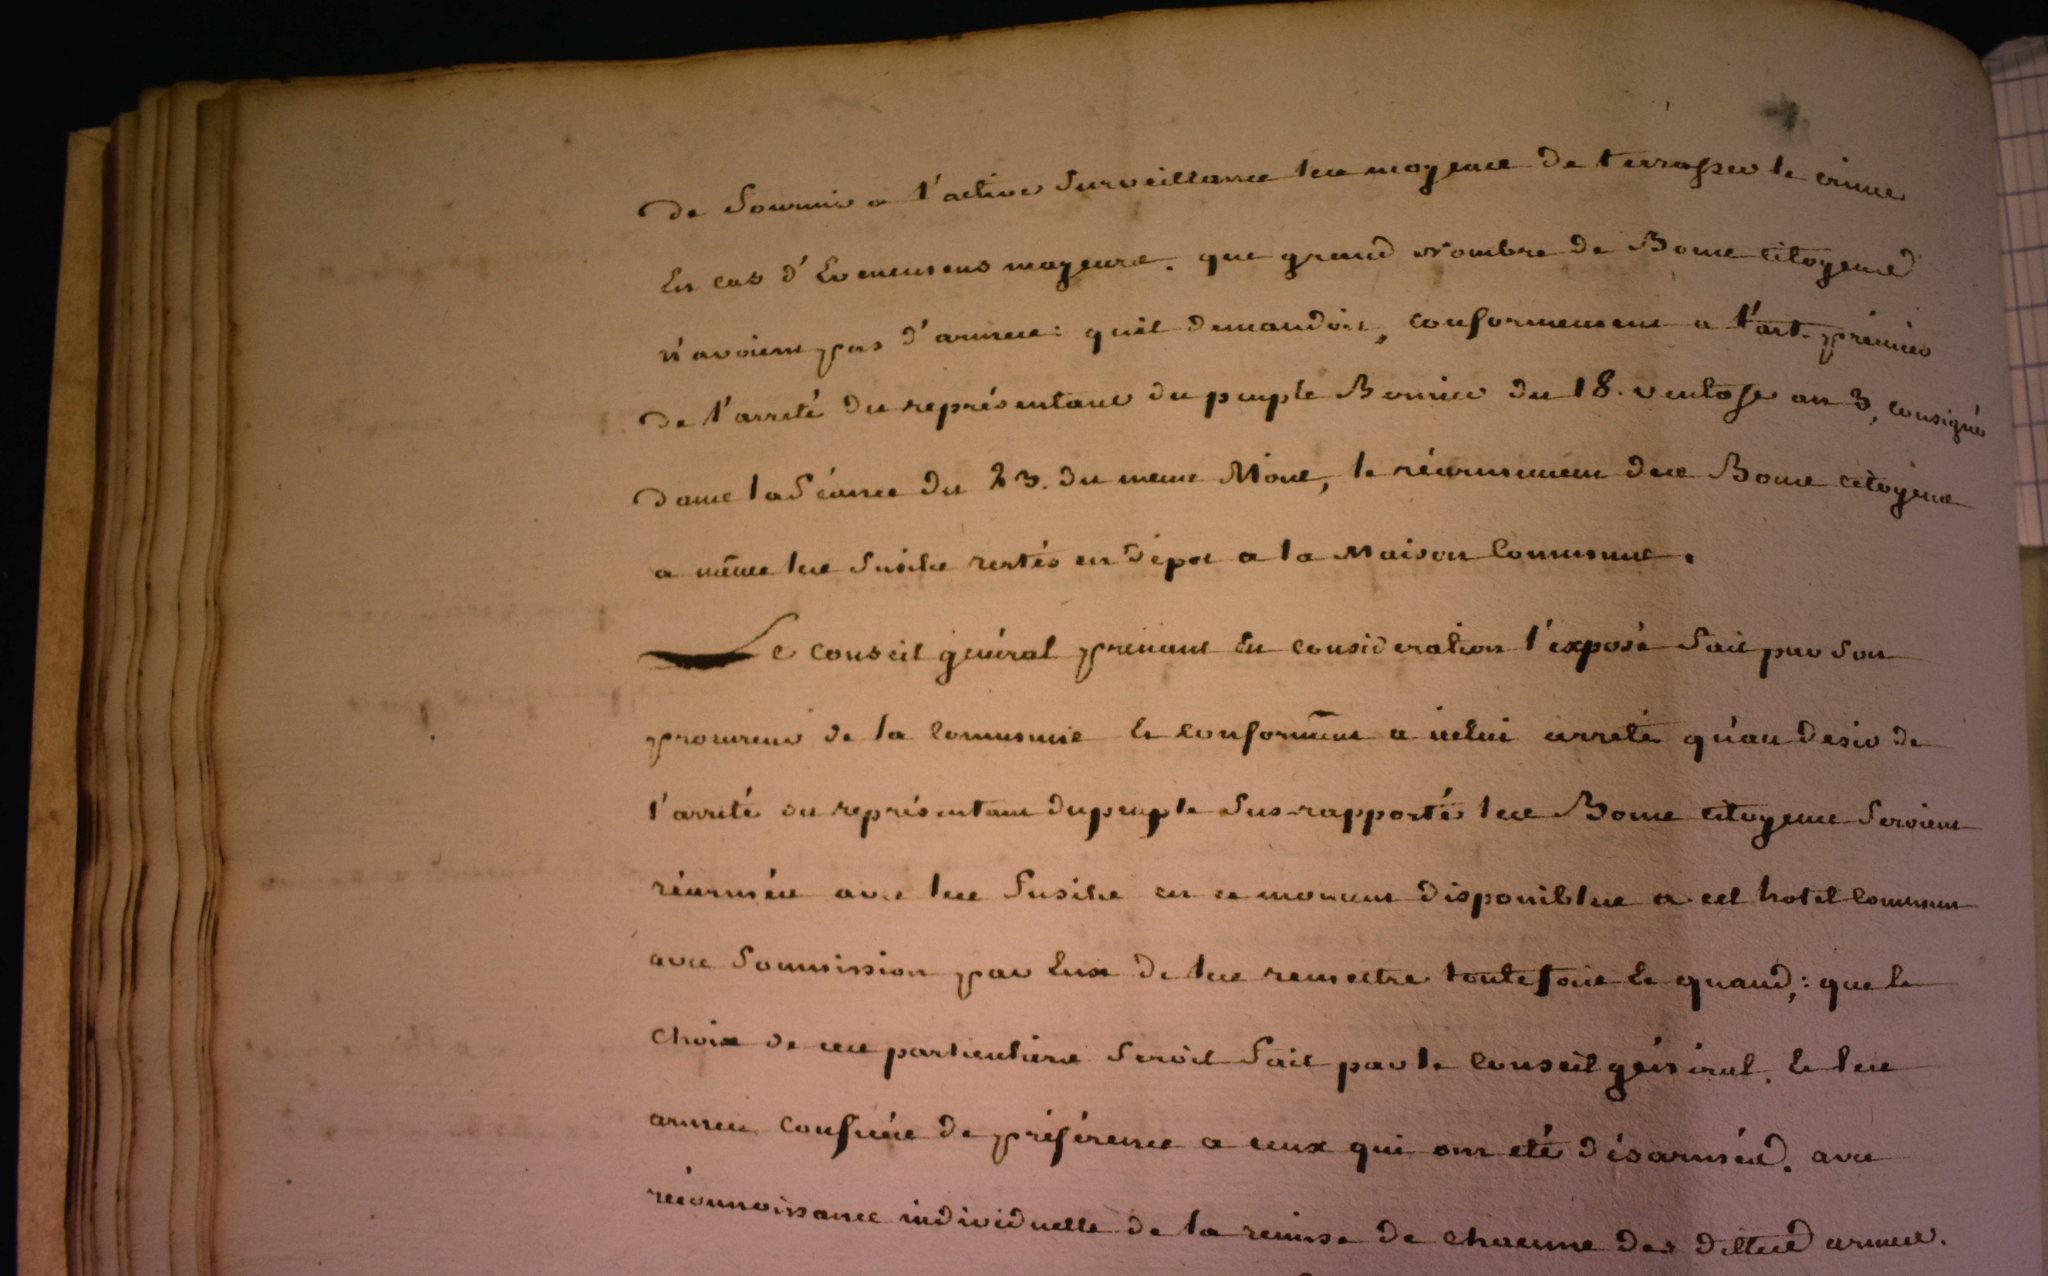 de fournir a l'active surveillance les moyens de terrasser le crime
En cas d'Evenemens mayeurs. que grand Nombre de Bons citoyens
n'avoient pas d'armes: qu'il demandoit, conformement a l'art. premier
de l'arrété du représentant du peuple Bernier du 18. ventose an 3, consigné
dans la Séance du 23. du meme Mois, le réarmement des Bons citoyens
a même les fusils restés en dépot a la Maison Commune.
Le conseil général prenant En consideration l'exposé fait par son
procureur de la Commune Et conformémt a icelui arreté qu'au desir de
l'arrété du représentant du peuple sus-rapporté les Bons citoyens seroient
réarmés avec les fusils en ce moment disponibles a cet hotel Commun
avec Soumission par Eux de les remettre toutefois Et quand; que le
choix de ces particuliers seroit fait par le Conseil général. Et les
armes confiées de préférence a ceux qui ont été désarmés. avec
réconnoissance individuelle de la remise de chacune des dittes armes.